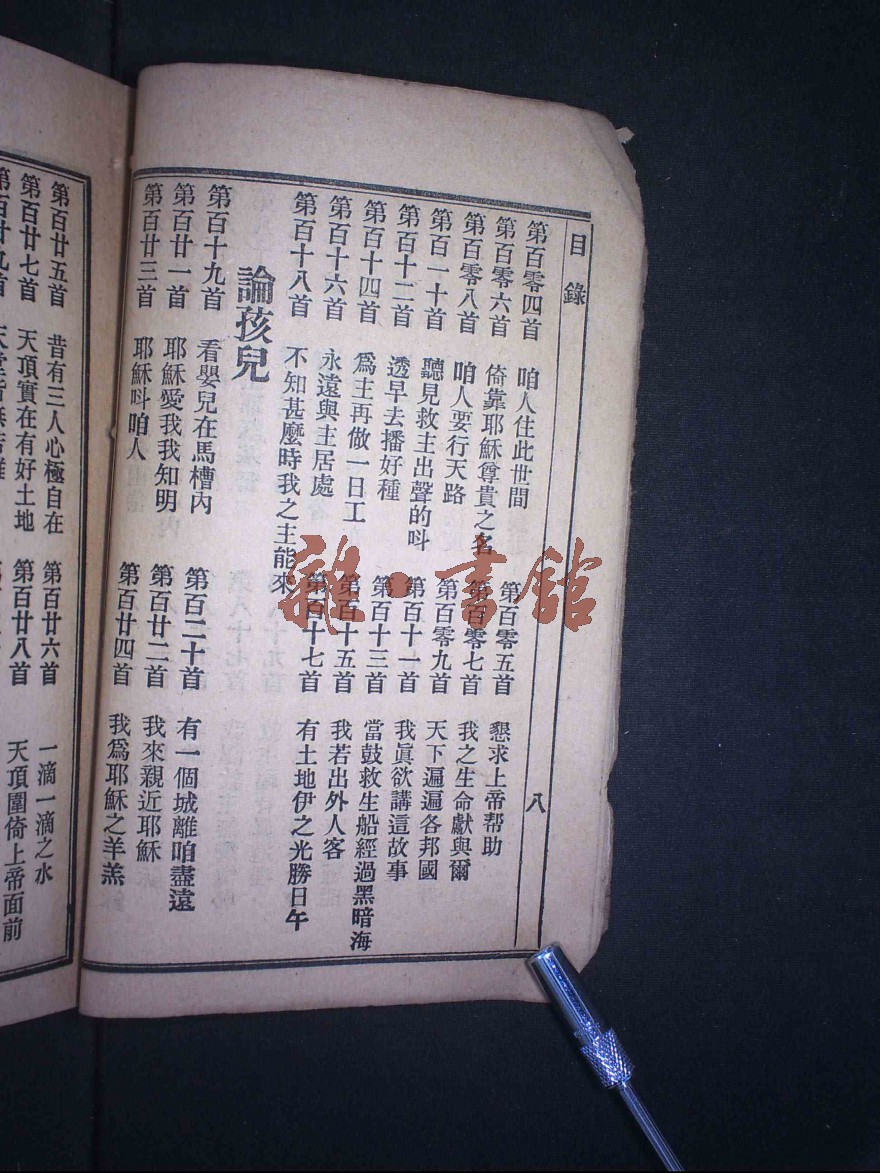 目錄
八
第百零四首 咱人住此世間 第百零五首 懇求上帝帮助
第百零六首 倚靠耶穌尊貴之名 第百零七首 我之生命獻與爾
第百零八首 咱人要行天路 第百零九首 天下遍遍各邦國
第百一十首 聽見救主出聲的呌 第百十一首 我眞欲講這故事
第百十二首 透早去播好種 第百十三首 當鼓救生船經過黑暗海
第百十四首 爲主再做一日工 第百十五首 我若出外人客
第百十六首 永遠與主居處 第百十七首 有土地伊之光勝日午
第百十八首 不知甚麼時我之主能來
論孩兒
第百十九首 看嬰兒在馬槽內 第百二十首 有一個城離咱盡遠
第百廿一首 耶穌愛我我知明 第百廿二首 我來親近耶穌
第百廿三首 耶穌呌咱人 第百廿四首 我爲耶穌之羊羔
第百廿五首 昔有三人心極自在 第百廿六首 一滴一滴之水
第百廿七首 天頂實在有好土地 第百廿八首 天頂圍倚上帝面前
第百廿九首
雜·書館